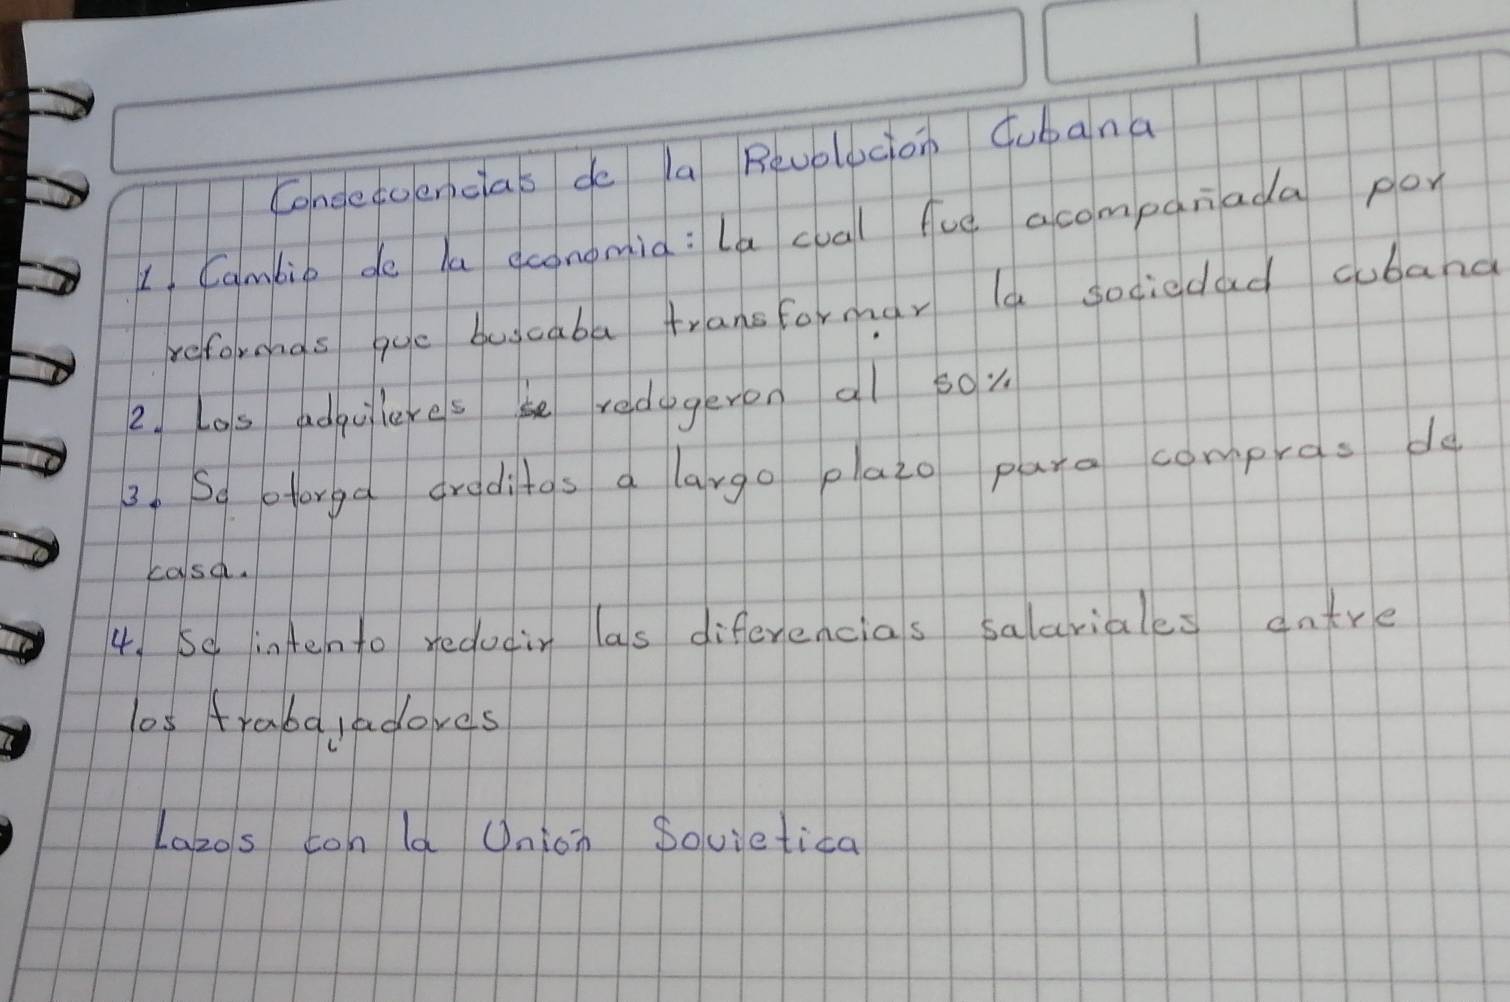 Consecuencias de la Revolución Cubana
1. Cambio de la economia: La cual fue acompañada por
reformas que buscaba transformar la sociedad cubana
2. Los adquileres se redugeron al 50%
3. Se otorga creditos a largo plazo para compras de
casa.
4. Se intento reducir las diferencias salariales entre
los trabajadores
Lazos con la Unión Sovietica